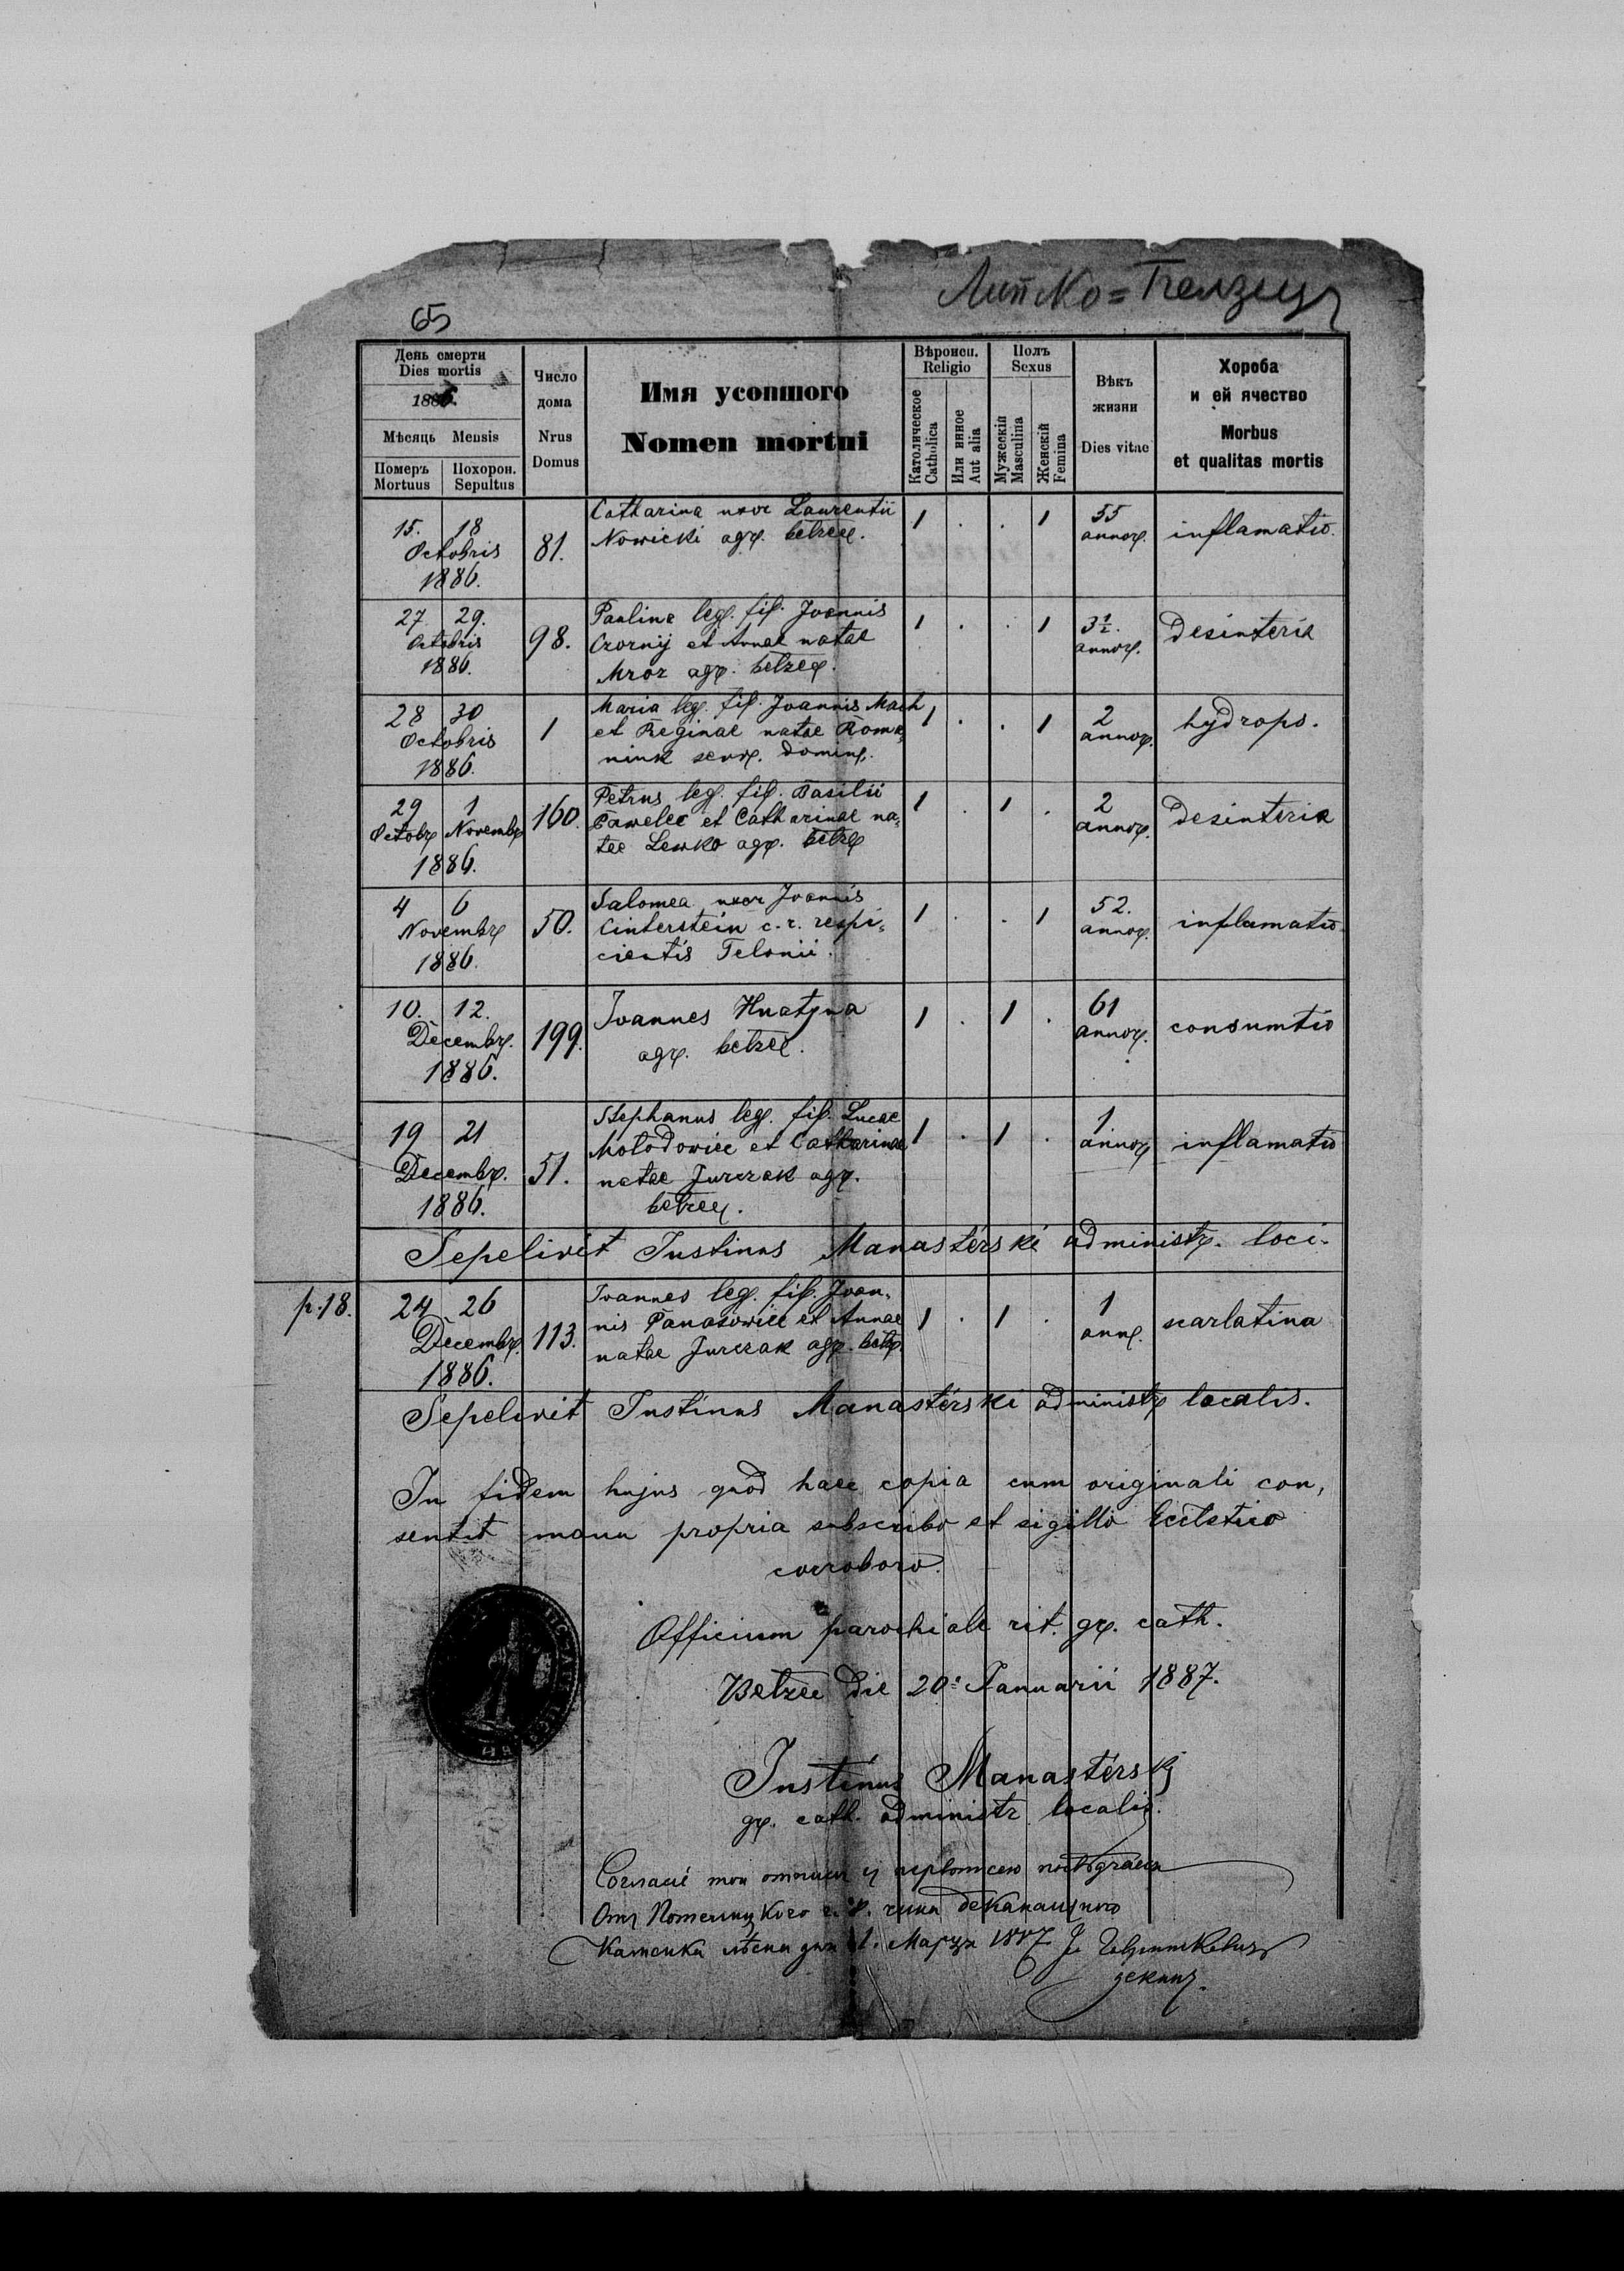 65
День смерти
Dies mortis
1886.
Мѣсяць Mensis
Померъ Похорон.
Mortuus Sepultus
Число
дома
Nrus
Domus
Имя усопшого
Nomen mortui
Вѣроисп.
Religio
Католическое
Catholica
Или инное
Aut alia
Полъ
Sexus
Мужескій
Masculina
Женскій
Femina
Вѣкъ
жизни
Dies vitae
Хороба
и ей ячество
Morbus
et qualitas mortis
15. 18
Octobris
1886.
81.
Catharina uxor Laurentii
Nowicki agr. betzec.
1 . . 1
55
annor.
inflamatio.
27 29.
Octobris
1886.
98.
Paulina leg. fil. Joannis
Czornij et Annae natae
Mroz agr. betzec.
1 . . 1
3½.
annor.
Desinteria
28 30
Octobris
1886.
1
Maria leg. fil. Joannis Mach
et Reginae natae Roma„
niuk serv. domin.
1 . . 1
2
annor.
hydrops.
29 1
Octobr Novembr
1886.
160.
Petrus leg. fil. Basilii
Pawelec et Catharinae na„
tae Lewko agr. betze
1 . 1 .
2
annor.
desinteria
4 6
Novembr
1886.
50.
Salomea uxor Joannis
Cinterstein c. r. respi„
cientis Telonii.
1 . . 1
52.
annor.
inflamatio
10. 12.
Decembr.
1886.
199.
Joannes Hnatyna
agr. betzec.
1 . 1 .
61
annor.
consumtio
19 21
Decembr.
1886.
51.
Stephanus leg. fil. Lucae
Mołodowiec et Catharinae
natae Jurczak agr.
betzec.
1 . 1 .
1
annor
inflamatio
Sepelivit Justinus Manasterski administr. loci.
p. 18.
24 26
Decembr.
1886.
113.
Joannes leg. fil. Joan„
nis Panasowiec et Annae
natae Jurczak agr. betz.
1 . 1 .
1
ann.
scarlatina
Sepelivit Justinus Manasterski administr localis.
In fidem hujus quod haec copia cum originali con„
sentit manu propria subscribo et sigillo Eccletico
corroboro.
Officium parochiale rit. gr. cath.
Betzec die 20. Januarii 1887.
Justinus Manasterskj
gr. cath. administr localis.